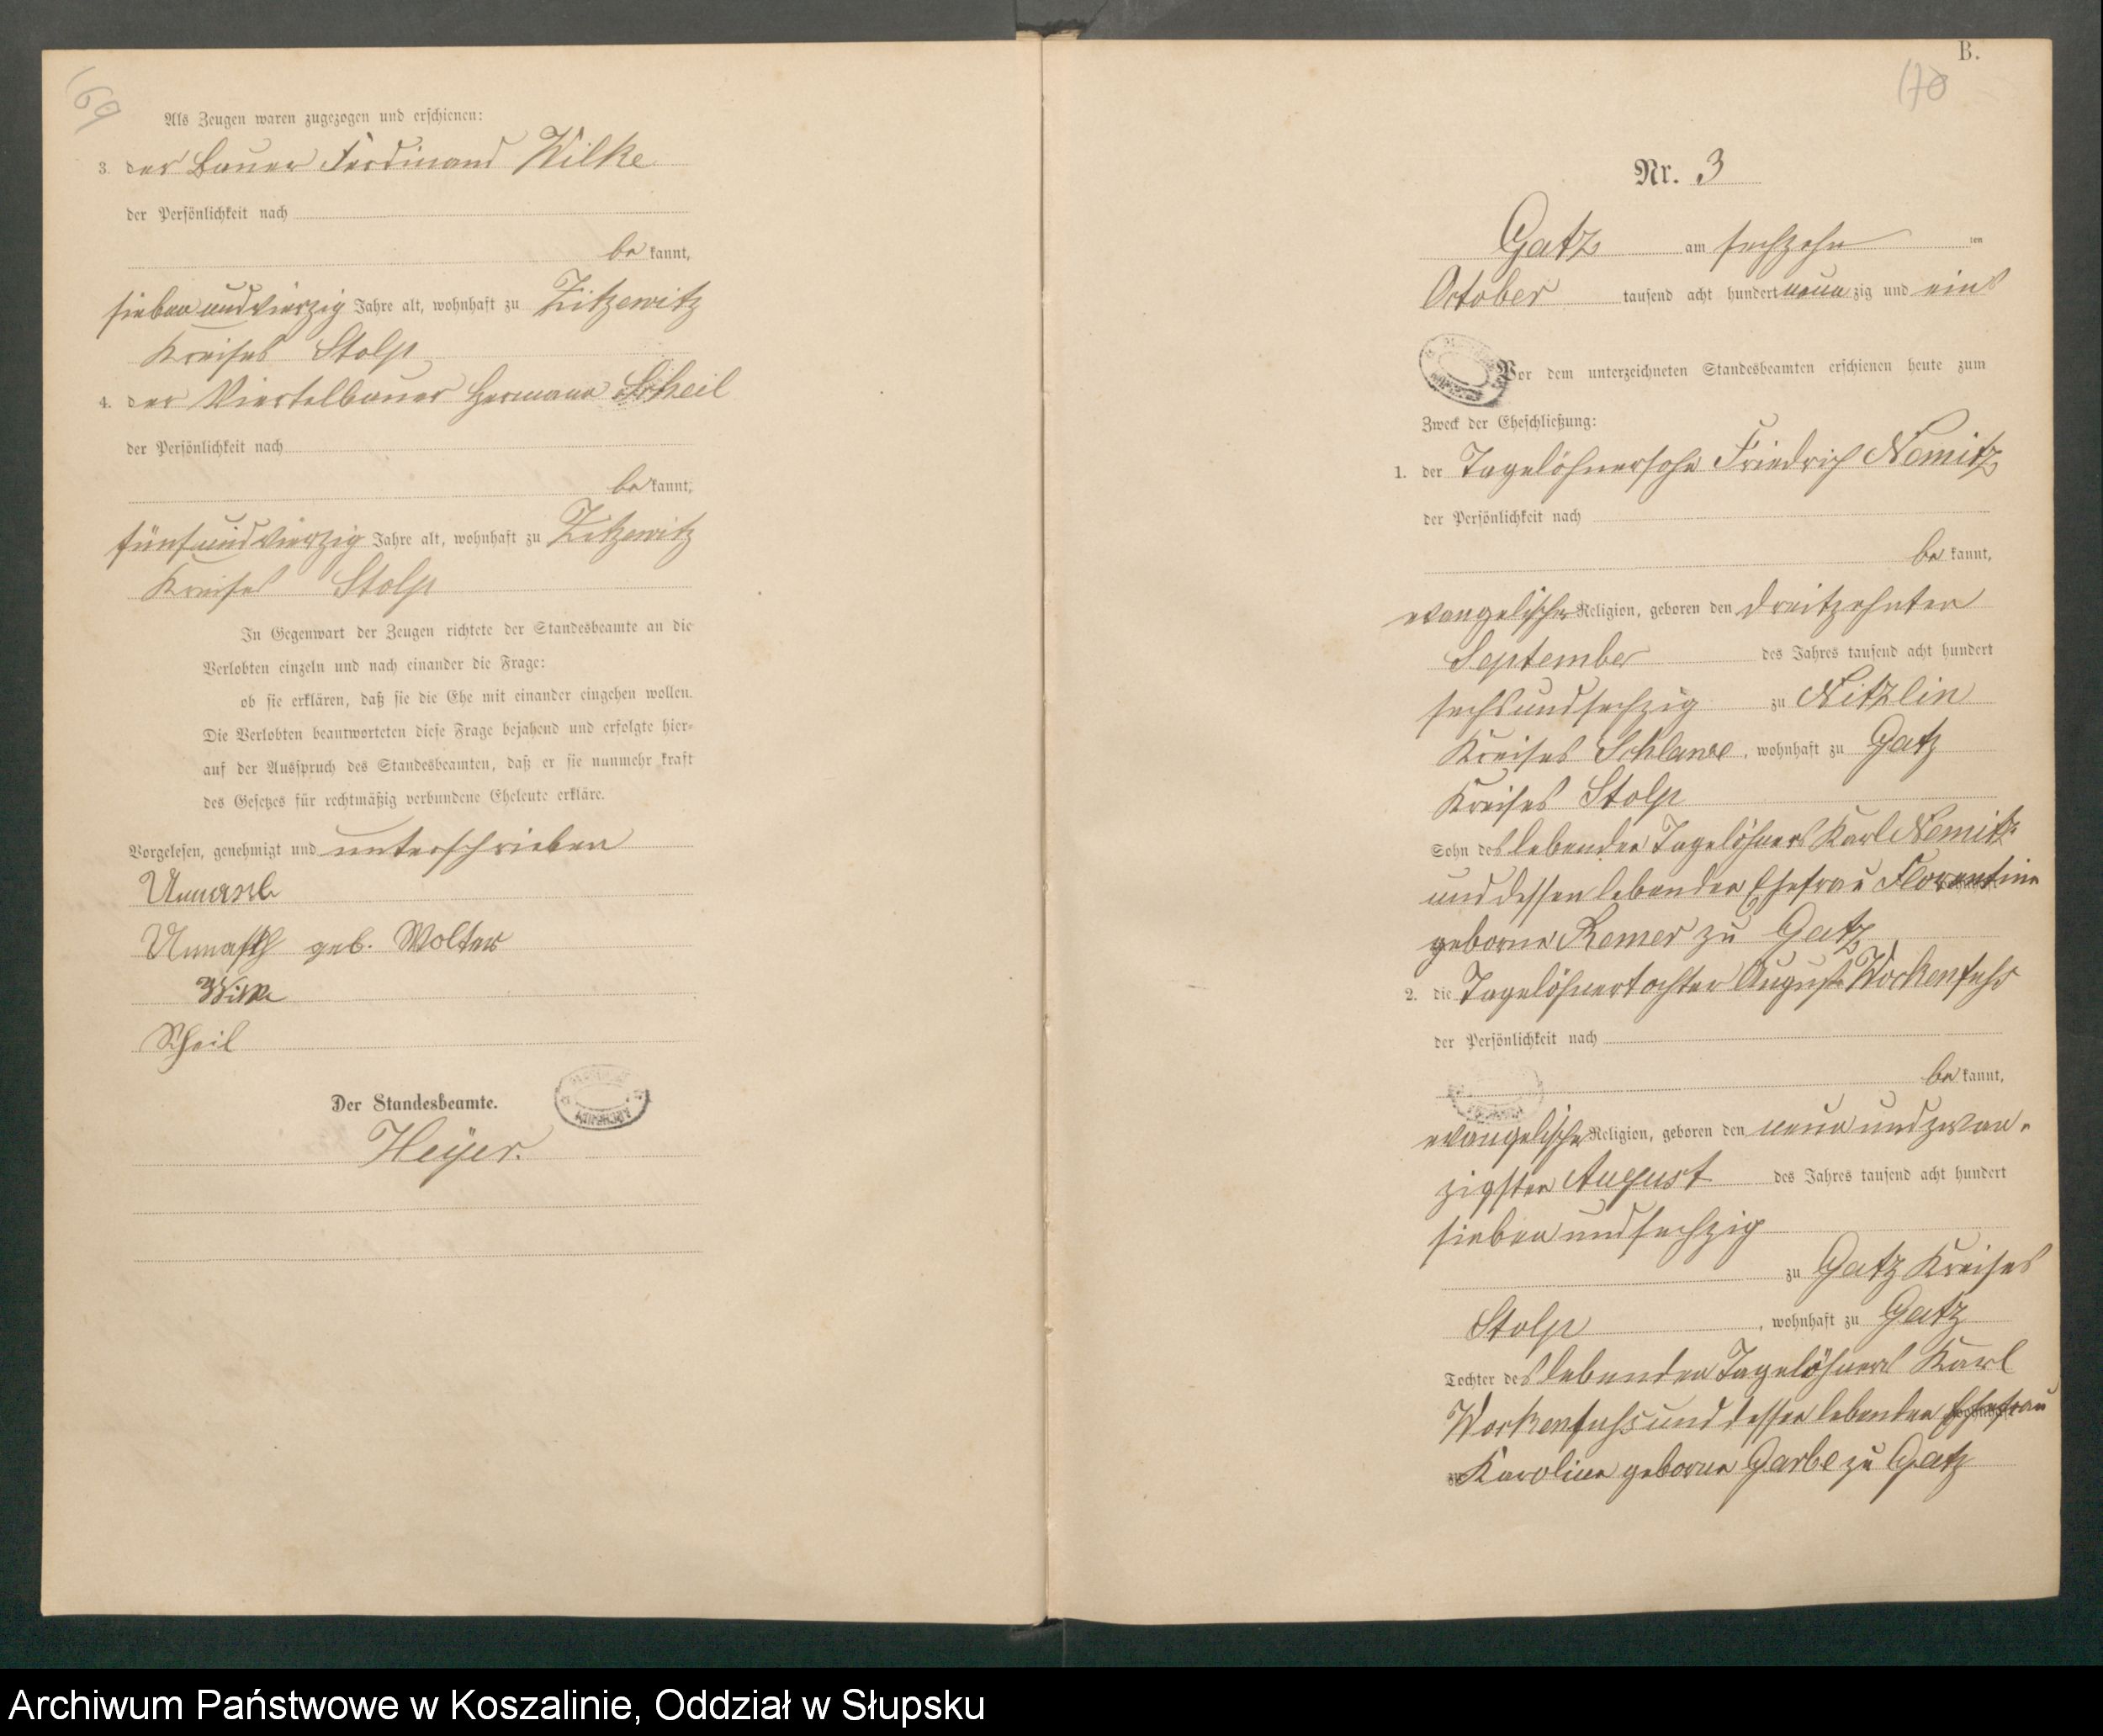 69
Als Zeugen waren zugezogen und erschienen:
3. der Bauer Ferdinand Wilke
der Persönlichkeit nach
be kannt,
siebenundvierzig Jahre alt, wohnhaft zu Zitzewitz
Kreises Stolp
4. der Viertelbauer Hermann Scheil
der Persönlichkeit nach
be kannt,
fünfundvierzig Jahre alt, wohnhaft zu Zitzewitz
Kreises Stolp
In Gegenwart der Zeugen richtete der Standesbeamte an die
Verlobten einzeln und nach einander die Frage:
ob sie erklären, daß sie die Ehe mit einander eingehen wollen.
Die Verlobten beantworteten diese Frage bejahend und erfolgte hier-
auf der Ausspruch des Standesbeamten, daß er sie nunmehr kraft
des Gesetzes für rechtmäßig verbundene Eheleute erkläre.
Vorgelesen, genehmigt und unterschrieben
geb. Wolter
Wilke
Scheil
Der Standesbeamte.
Heyer.
B.
170
Nr. 3
Gatz am sechzehn ten
October tausend acht hundert neun zig und eins
Vor dem unterzeichneten Standesbeamten erschienen heute zum
Zweck der Eheschließung:
1. der Tagelöhnersohn Friedrich Nemitz
der Persönlichkeit nach
be kannt,
evangelischer Religion, geboren den dreizehnten
September des Jahres tausend acht hundert
sechsundsechzig zu Nitzlin
Kreises Schlawe, wohnhaft zu Gatz
Kreises Stolp
Sohn des lebenden Tagelöhners Karl Nemitz
und dessen lebenden Ehefrau Florentine
geborne Remer zu Gatz
2. die Tagelöhnertochter Auguste Wockenfuhs
der Persönlichkeit nach
be kannt,
evangelischer Religion, geboren den neunundzwan-
zigsten August des Jahres tausend acht hundert
siebenundsechzig
zu Gatz Kreises
Stolp, wohnhaft zu Gatz
Tochter des lebenden Tagelöhners Karl
Wockenfuhs und dessen lebenden Ehefrau
Karoline geborne Garbe zu Gatz
Archiwum Państwowe w Koszalinie, Oddział w Słupsku